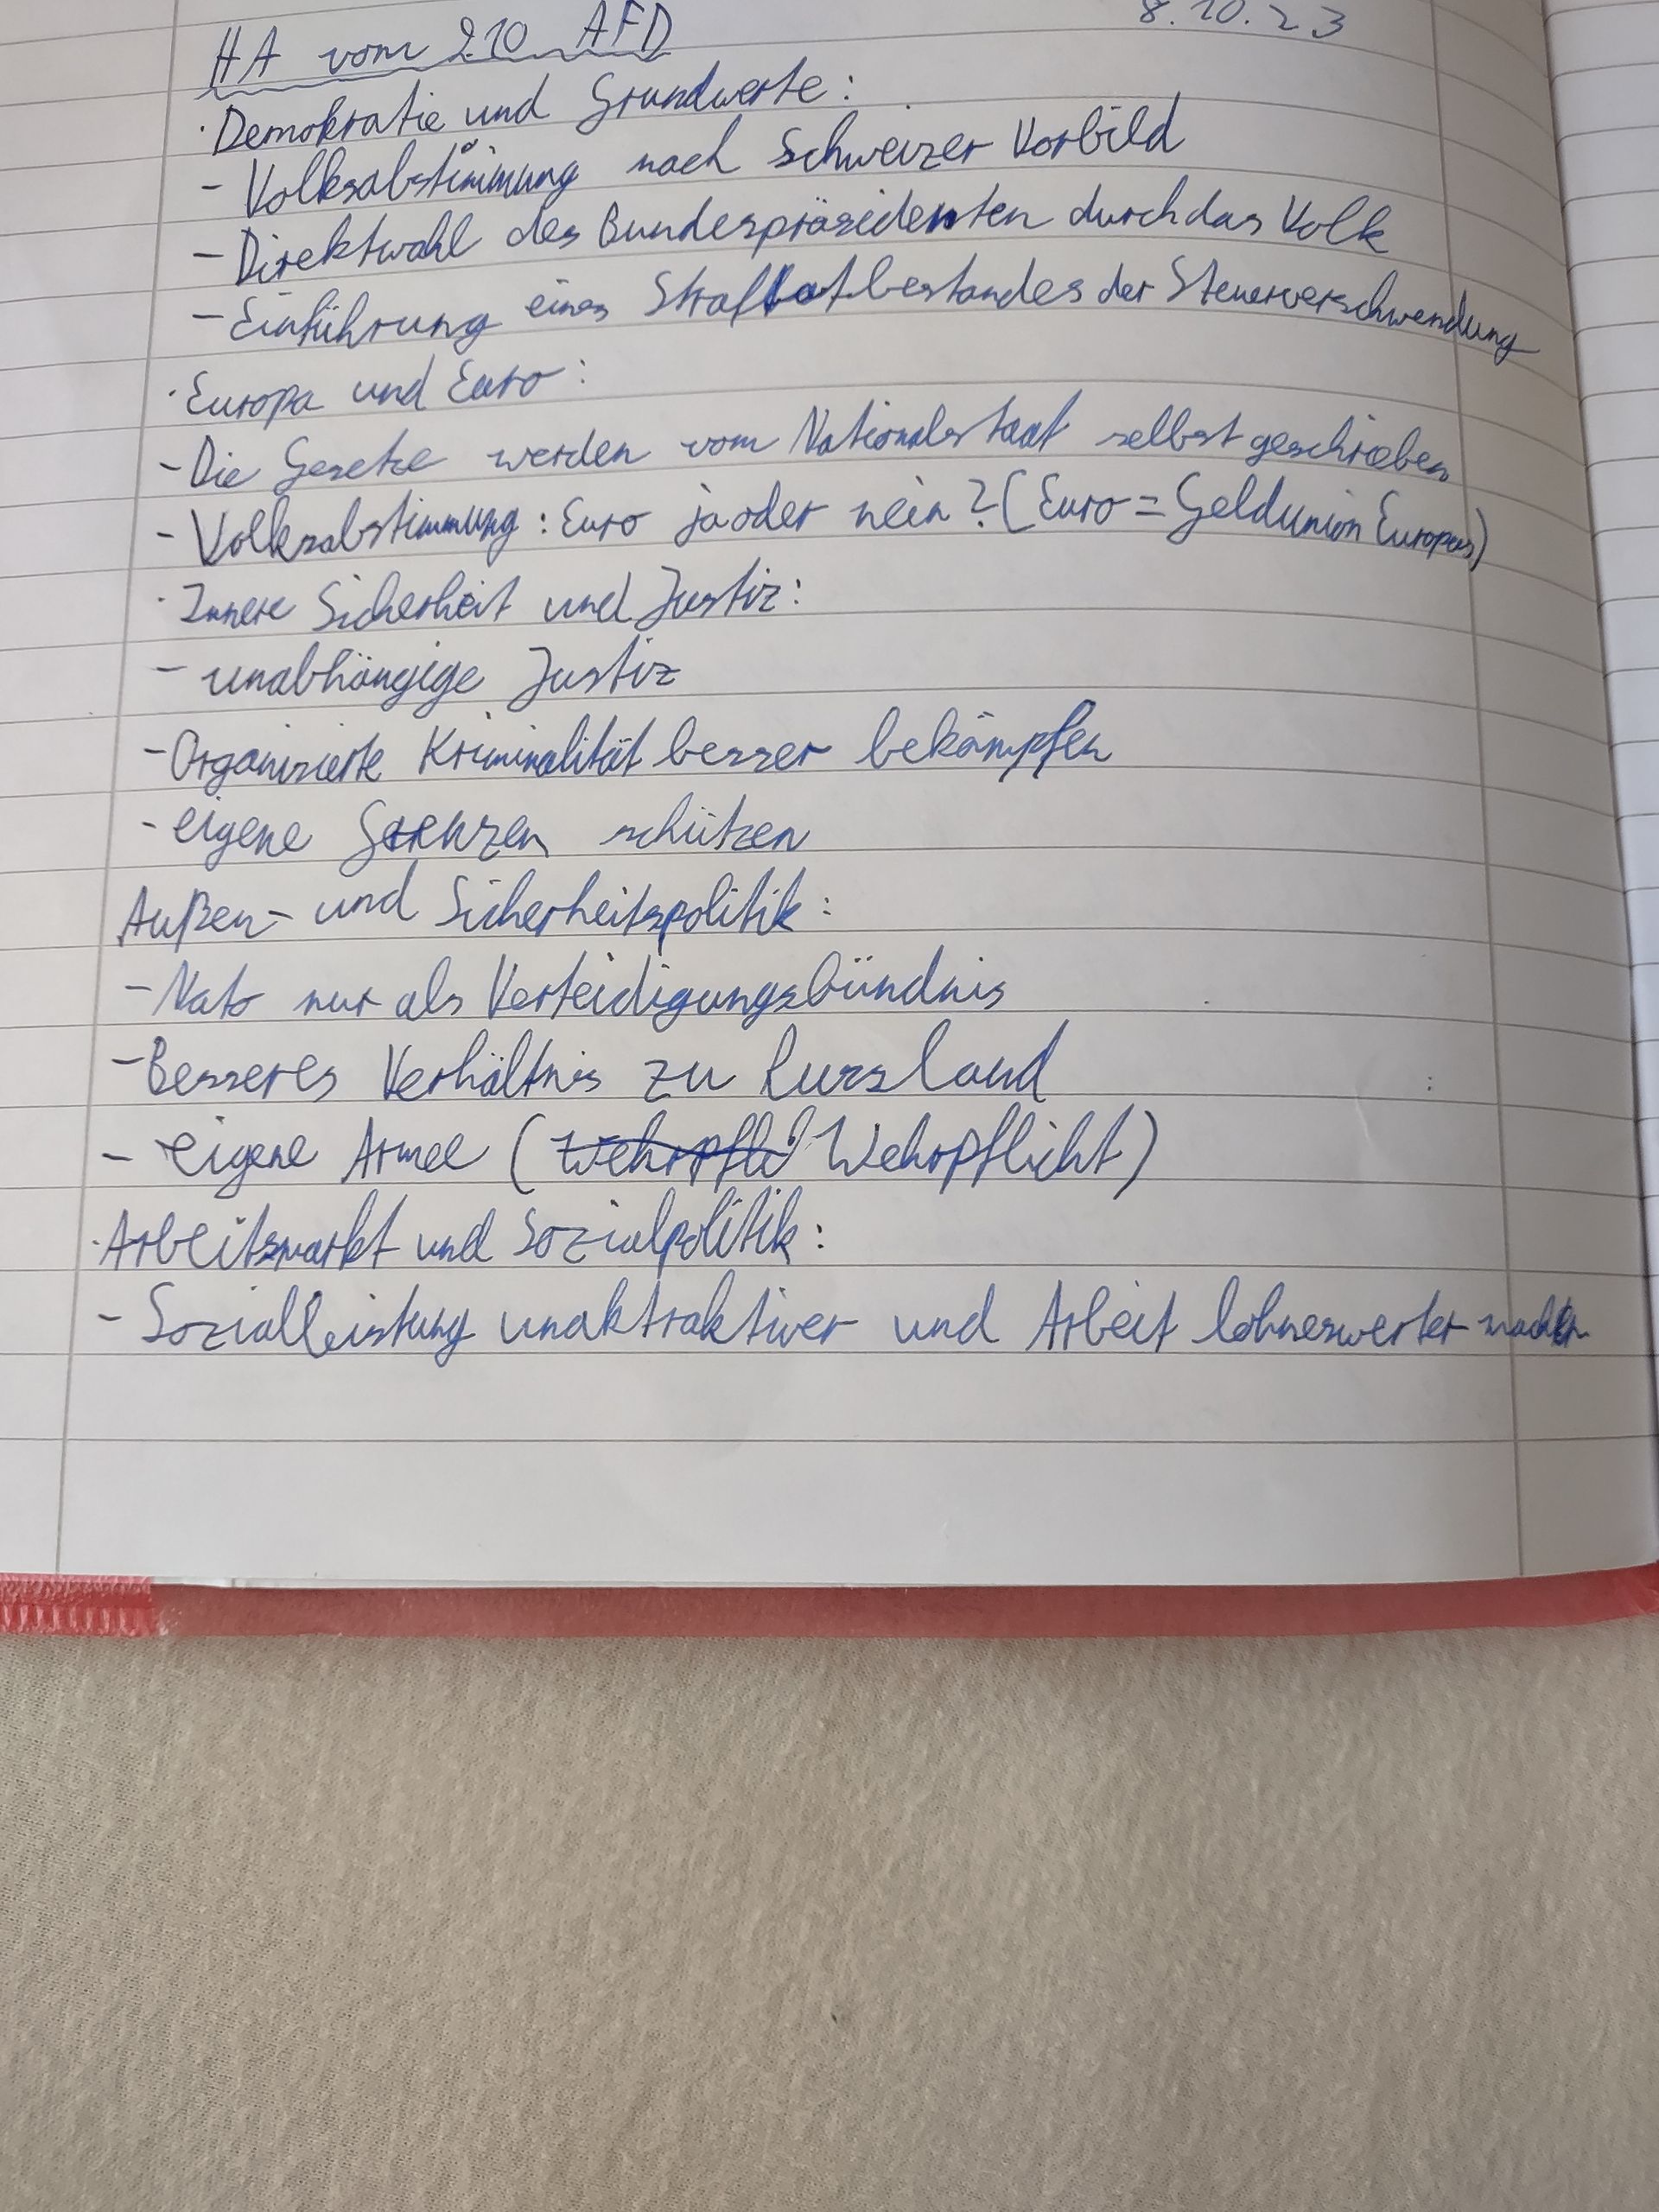 8.10.23
HA vom 2.10 AFD
· Demokratie und Grundwerte:
- Volksabstimmung nach Schweizer Vorbild
- Direktwahl des Bundespräsidenten durch das Volk
- Einführung eines Straftatbestandes der Steuerverschwendung
· Europa und Euro:
- Die Gesetze werden vom Nationalstaat selbst geschrieben
- Volksabstimmung: Euro ja oder nein? (Euro = Geldunion Europas)
· Innere Sicherheit und Justiz:
- unabhängige Justiz
- Organisierte Kriminalität besser bekämpfen
- eigene Grenzen schützen
Außen- und Sicherheitspolitik:
- Nato nur als Verteidigungsbündnis
- Besseres Verhältnis zu Russland
- eigene Armee (Wehrpfli Wehrpflicht)
· Arbeitsmarkt und Sozialpolitik:
- Sozialleistung unaktraktiver und Arbeit lohneswerter machen